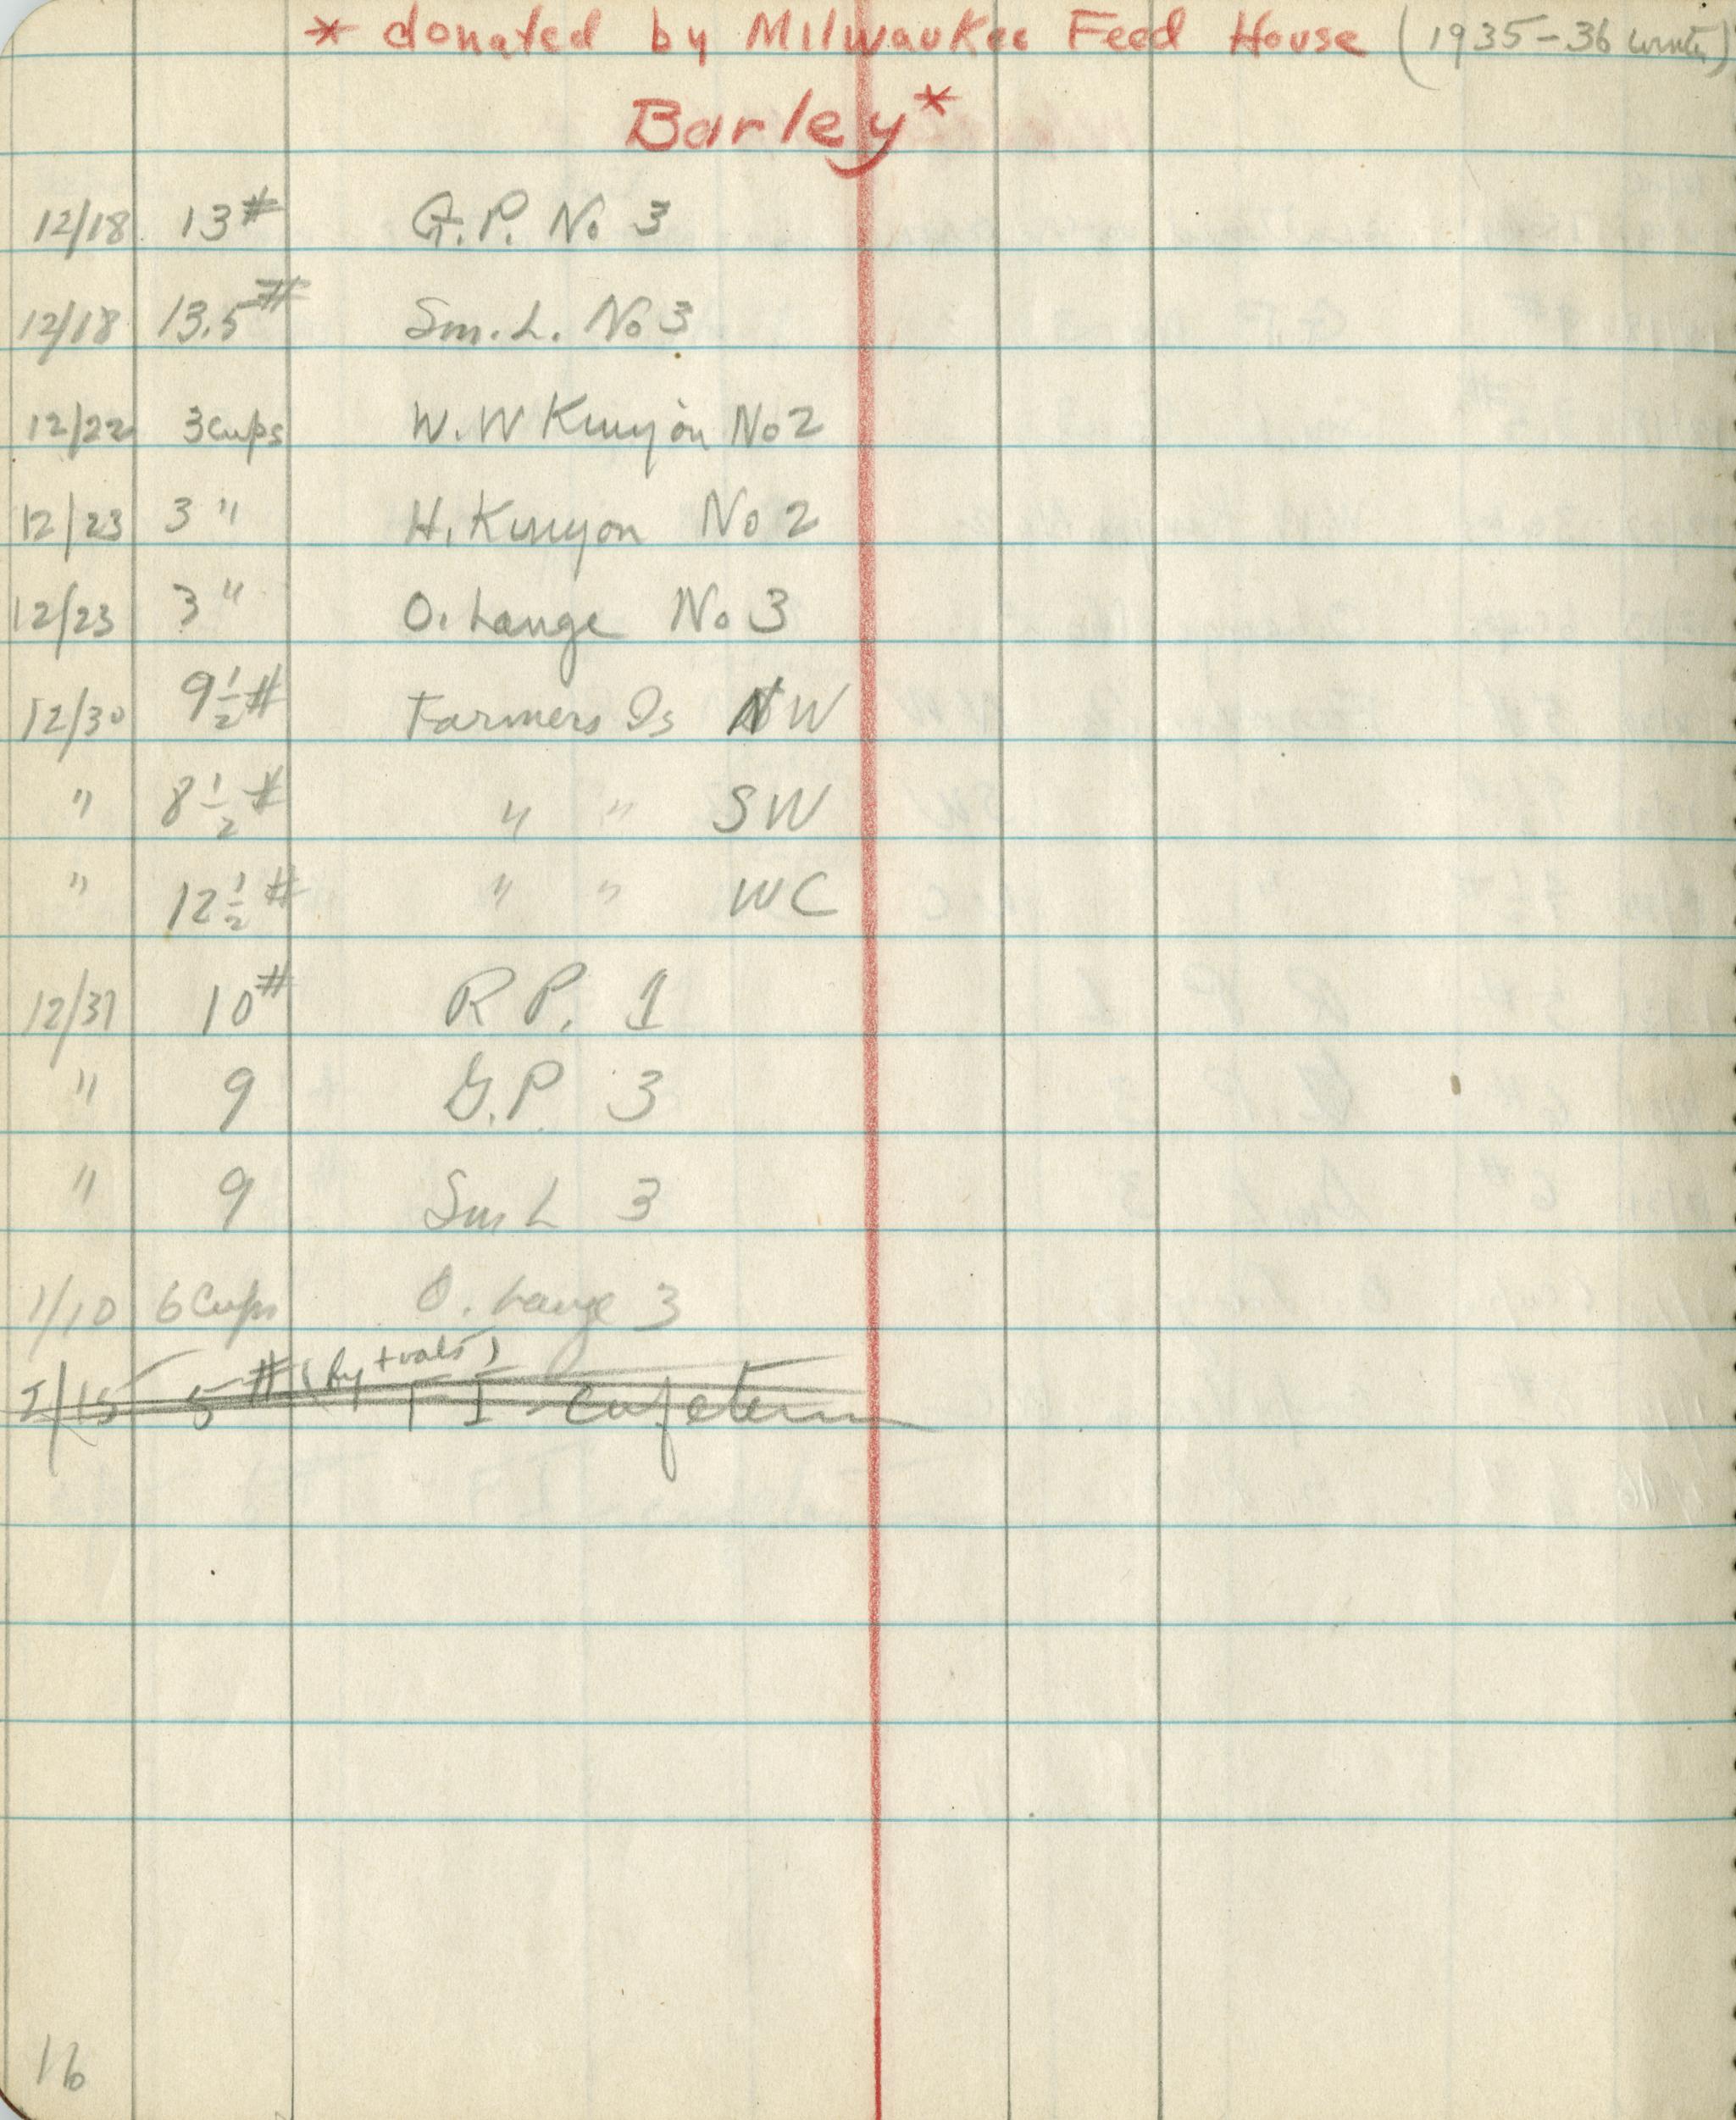 * donated by Milwaukee Feed House (1935-36 winter)
Barley*
12/18 13# G.P. No 3
12/18 13.5# Sm. L. No 3
12/22 3 cups W.W Kinyon No 2
12/23 3 " H. Kinyon No 2
12/23 3 " O. Lange No 3
12/30 9 1/2 # Farmers Is NW
" 8 1/2 # " " SW
" 12 1/2 # " " WC
12/31 10# R P. 1
" 9 G.P. 3
" 9 Sm L 3
1/10 6 Cups O. Lange 3
1/15 5 # (by
16